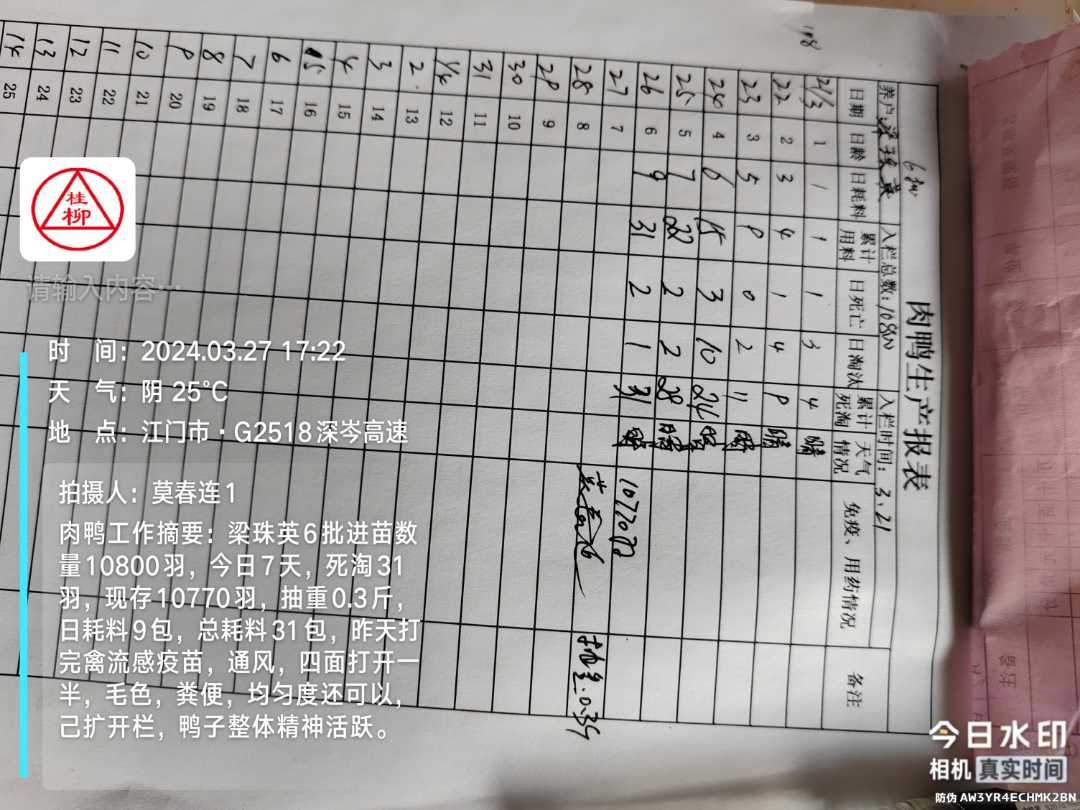 肉鸭生产报表
6批
养户 梁珠英 入栏总数：10800 入栏时间：3.21
日期 日龄 日耗料 累计用料 日死亡 日淘汰 累计死淘 天气情况 免疫、用药情况 备注
21/3 1 1 1 1 3 4 晴
22 2 3 4 1 4 9 晴
23 3 5 9 0 2 11 晴
24 4 6 15 3 10 24 阴
25 5 7 22 2 2 28 晴
26 6 9 31 2 1 31
27 7 10770羽
28 8 莫春连 抽重.0.3斤
29 9
30 10
31 11
1/4 12
2 13
3 14
4 15
5 16
6 17
7 18
8 19
9 20
10 21
11 22
12 23
13 24
14 25
桂柳
请输入内容…
时 间：2024.03.27 17:22
天 气：阴 25℃
地 点：江门市·G2518深岑高速
拍摄人：莫春连1
肉鸭工作摘要：梁珠英6批进苗数
量10800羽，今日7天，死淘31
羽，现存10770羽，抽重0.3斤，
日耗料9包，总耗料31包，昨天打
完禽流感疫苗，通风，四面打开一
半，毛色，粪便，均匀度还可以，
己扩开栏，鸭子整体精神活跃。
今日水印
相机 真实时间
防伪 AW3YR4ECHMK2BN